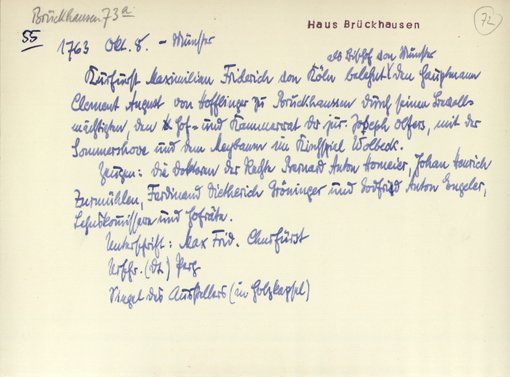 Brückhausen 73a
Haus Brückhausen
72
55
1763 Okt. 8. - Münster
als Bischof von Münster
Kurfürst Maximilian Friderich von Köln belehnt den Hauptmann
Clement August von Höfflinger zu Brückhausen durch seinen Bevoll-
mächtigten, den Hof- und Kammerrat Dr jur. Joseph Olfers, mit der
Sommershove und dem Meybaum im Kirchspiel Wolbeck.
Zeugen: Die doktoren der Rechte Bernard Anton Homeier, Johan Henrich
Zurmühlen, Ferdinand Dietherich Gröninger und Godfrid Anton Engelen,
Lehnskommissare und Hofräte.
Unterschrift: Max Frid. Churfürst
Urschr. (dt.) Perg
Siegel des Ausstellers (in Holzkapsel)